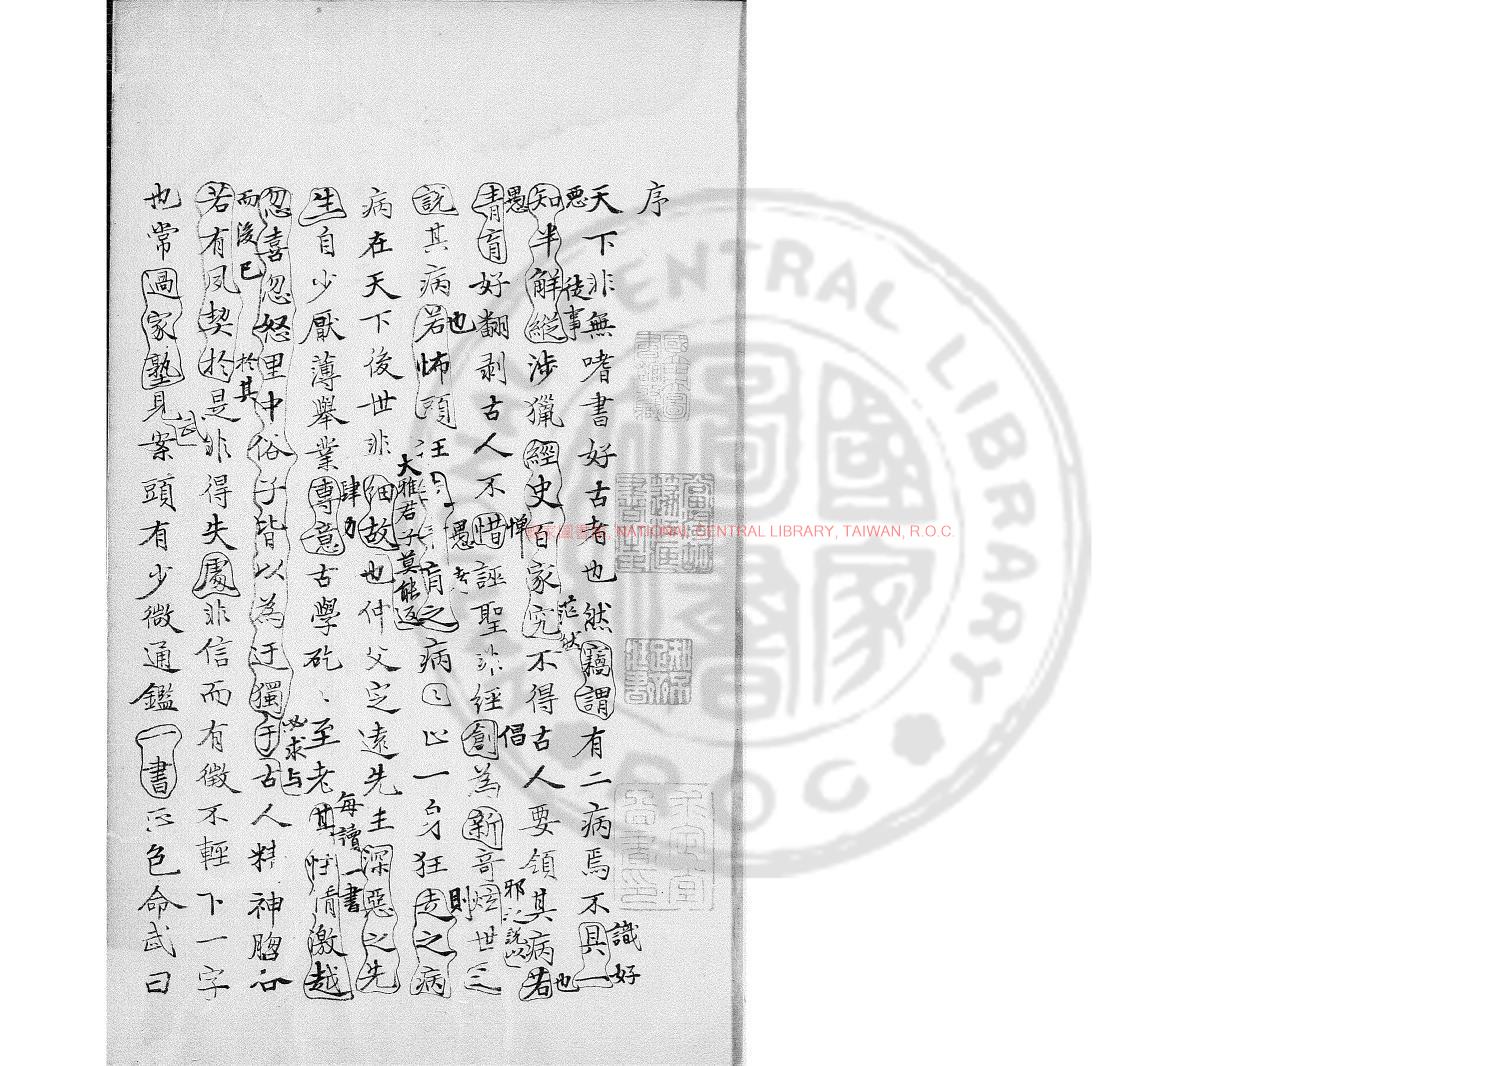 序
天下非無嗜書好古者也然竊謂有二病焉不具一
識好
惡
徒事
知半解縱涉獵經史百家究不得古人要領其病若
茫然
也
愚
青盲好翻剥古人不惜誣聖非經創為新奇炫世
憚
倡
邪說以
說其病若怖頭狂
也
愚者
則
盲之病止一身狂走之病
病在天下後世非細故也仲父定遠先生深惡之先
大雅君子莫能返
生自少厭薄舉業專意古學矻、至老其性情激越
肆力
每讀一書
忽喜忽怒里中俗子皆以為迂獨于古人精神胸
必求与
而後已
於其
若有夙契於是非得失處非信而有徵不輕下一字
也常過家塾見案頭有少微通鑑一書正色命武曰
武
國家圖書館, NATIONAL CENTRAL LIBRARY, TAIWAN, R.O.C.
CENTRAL LIBRARY
R.O.C